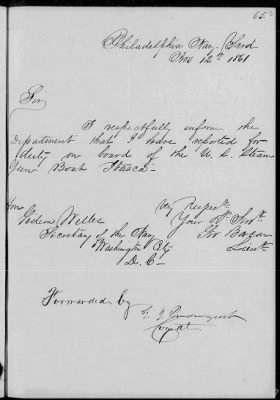 65
Philadelphia Navy Yard
Nov 12th 1861
Sir
I respectfully inform the
Department that I have reported for
duty on board of the U. S. Steam
Gun Boat Itasca
Very Respectfy
Your Obt Servt
Hon
Gideon Welles
Secretary of the Navy
Lieut
Washington City
D. C.
Forwarded by
Comdt